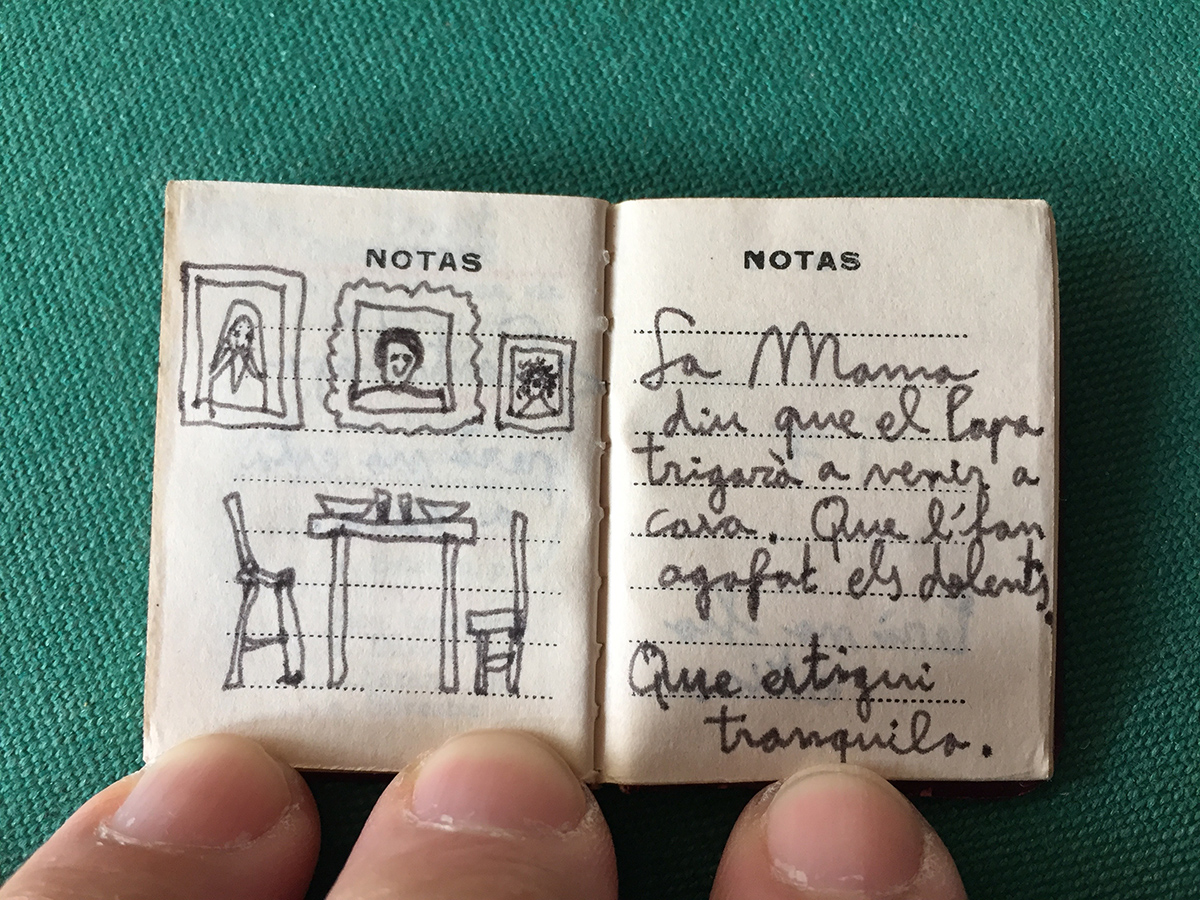 NOTAS
NOTAS
La Mama
diu que el Papa
trigarà a venir a
casa. Que l'han
agafat els dolents.
Que estigui
tranquila.